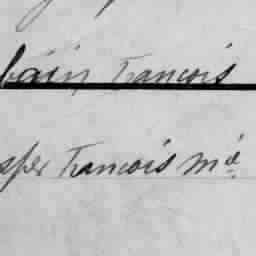 bain, Francois
sper Francois md